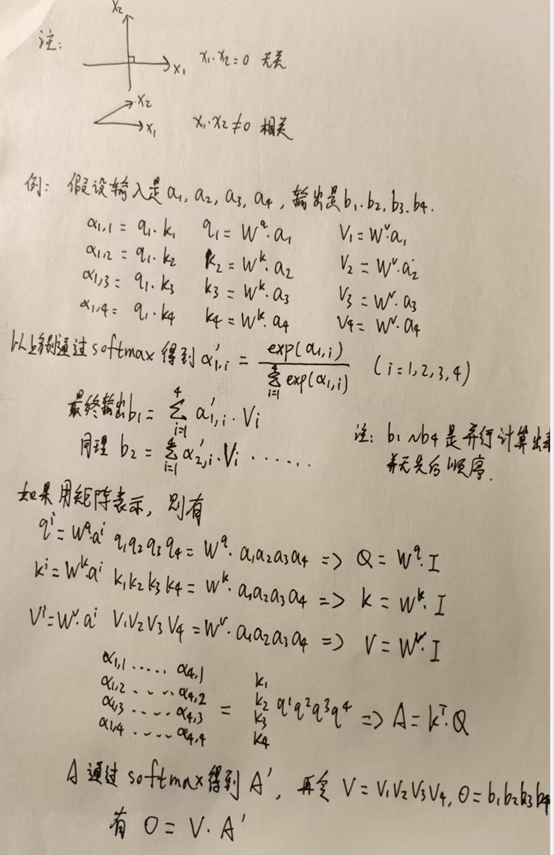 注:
x₂
x₁
x₁·x₂=0 无关
x₂
x₁
x₁·x₂≠0 相关
例: 假设输入是a₁, a₂, a₃, a₄, 输出是b₁.b₂,b₃.b₄.
α₁,₁ = q₁·k₁ q₁=W^q·a₁ V₁=W^v·a₁
α₁,₂ = q₁·k₂ k₂=W^k·a₂ V₂=W^v·a₂
α₁,₃ = q₁·k₃ k₃=W^k·a₃ V₃=W^v·a₃
α₁,₄ = q₁·k₄ k₄=W^k·a₄ V₄=W^v·a₄
以上分别通过softmax得到α'₁,ᵢ = exp(α₁,ᵢ) / Σ_{i=1}^{4} exp(α₁,ᵢ) (i=1,2,3,4)
最终输出b₁= Σ_{i=1}^{4} α'₁,ᵢ·Vᵢ
同理 b₂= Σ_{i=1}^{4} α'₂,ᵢ·Vᵢ ······
注: b₁~b₄是并行计算出来
并无先后顺序.
如果用矩阵表示, 则有
qⁱ=W^q·aⁱ q₁q₂q₃q₄=W^q·a₁a₂a₃a₄ => Q=W^q·I
kⁱ=W^k·aⁱ k₁k₂k₃k₄=W^k·a₁a₂a₃a₄ => k=W^k·I
Vⁱ=W^v·aⁱ V₁V₂V₃V₄=W^v·a₁a₂a₃a₄ => V=W^v·I
α₁,₁ ····· α₄,₁ k₁
α₁,₂ ····· α₄,₂ = k₂ q¹q²q³q⁴ => A=k^T·Q
α₁,₃ ····· α₄,₃ k₃
α₁,₄ ····· α₄,₄ k₄
A通过softmax得到A', 再令V=V₁V₂V₃V₄, O=b₁b₂b₃b₄
有 O=V·A'